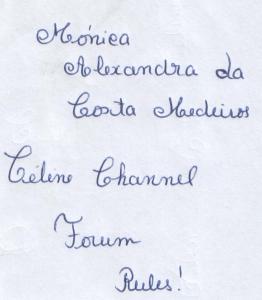 Mónica
Alexandra da
Costa Medeiros
Céline Channel
Forum
Rules!